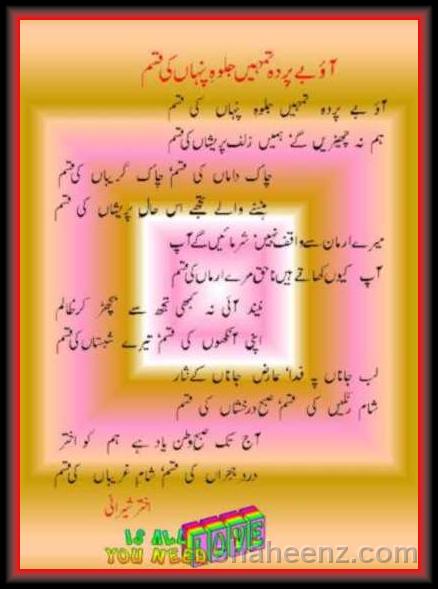 آؤ بے پردہ تمہیں جلوہِ پنہاں کی قسم
آؤ بے پردہ تمہیں جلوہِ پنہاں کی قسم
ہم نہ چھیڑیں گے ہمیں زلفِ پریشاں کی قسم
چاکِ داماں کی قسم، چاکِ گریباں کی قسم
ہنسنے والے تجھے اس حال پریشاں کی قسم
میرے ارمان سے واقف نہیں، شرمائیں گے آپ
آپ کیوں کھاتے ہیں ناحق مرے ارماں کی قسم
نیند آئی نہ کبھی تجھ سے بچھڑ کر ظالم
اپنی آنکھوں کی قسم، تیرے شبستاں کی قسم
لبِ جاناں پہ فدا، عارضِ جاناں کے نثار
شامِ رنگیں کی قسم، صبحِ درخشاں کی قسم
آج تک صبحِ وطن یاد ہے ہم کو اختر
دردِ ہجراں کی قسم، شامِ غریباں کی قسم
اختر شیرانی
IS ALL
YOU NEED
LOVE
shaheenz.com